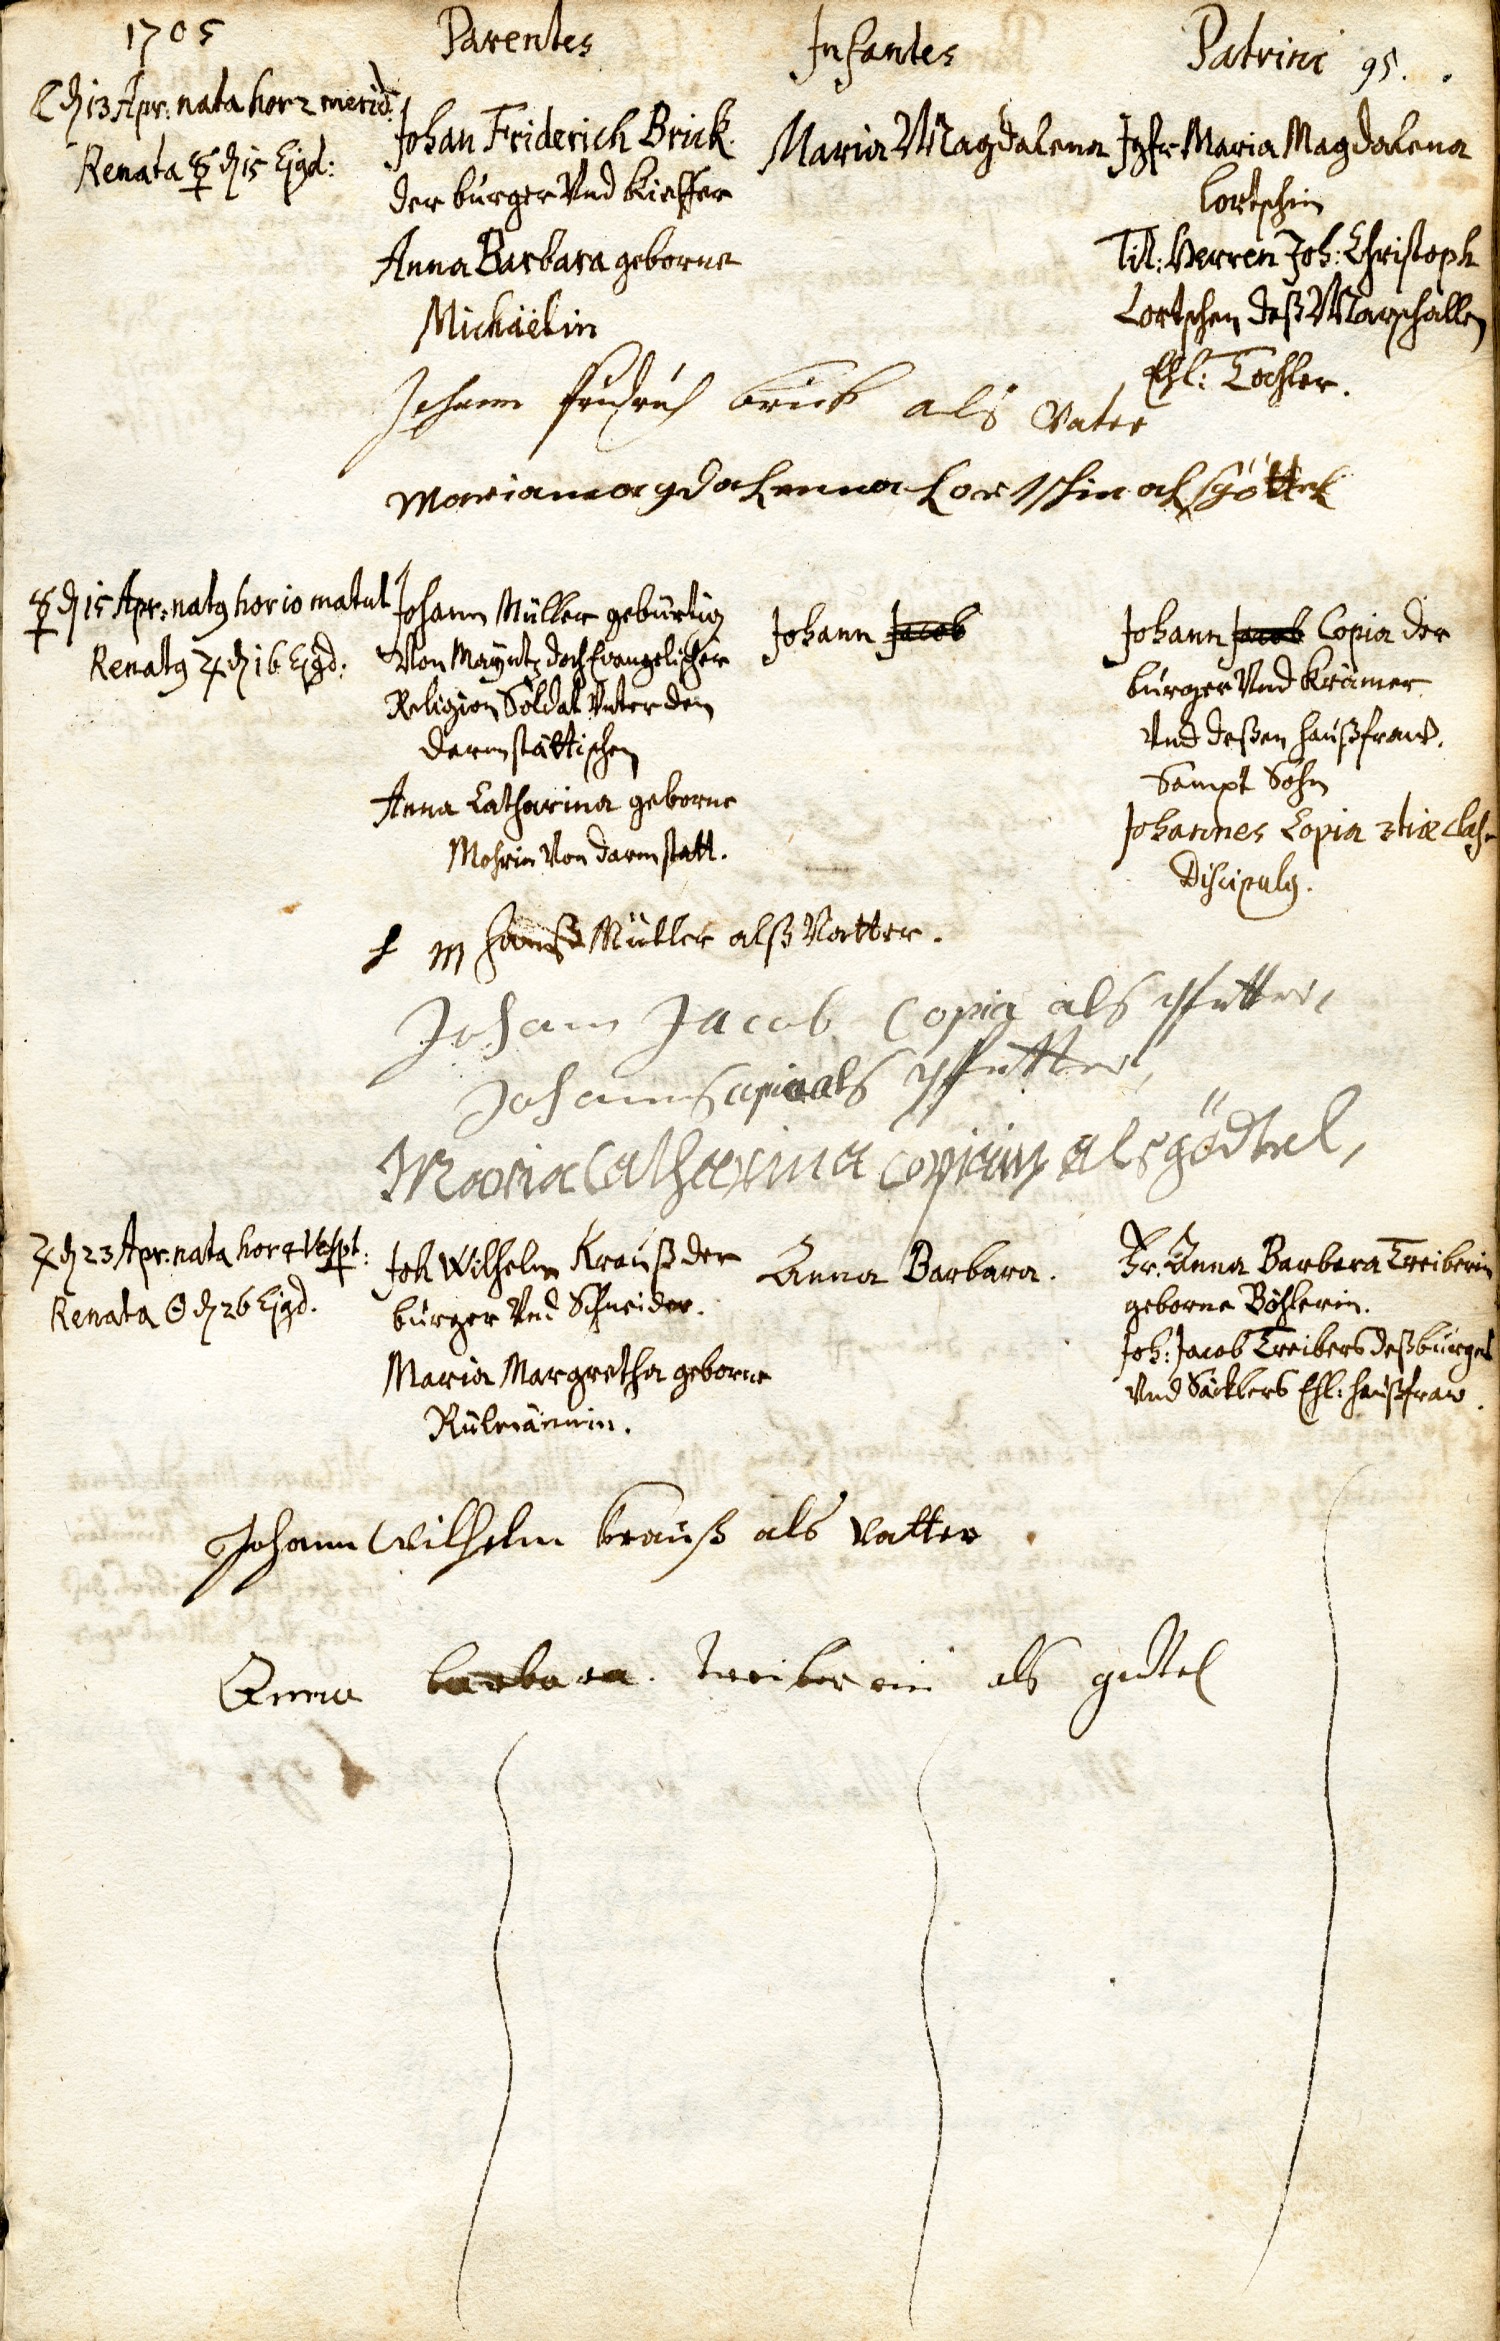 1705 Parentes Infantes Patrini 95.
☾ d 13 Apr: nata hor 2 merid:
Renata ☿ d 15 Ejgd:
Johan Friderich Brick.
der burger Vnd Kieffer
Anna Barbara geborne
Michäelin
Maria Magdalena
Jgfr Maria Magdalena
Lortschin
Tit: Herren Joh: Christoph
Lortschen deß Marschallen
Ehl: Tochter.
Johann fridrich brick als Vater
Mariamagdalenna Lortschin als göttel
☿ d 15 Apr: natg hor 10 matut
Renatg ♃ d 16 Ejgd:
Johann Müller gebürtig
Von Mayntz doch Evangelischer
Religion Soldat Vnter den
darmstättischen
Anna Catharina geborne
Mohrin Von darmstatt.
Johann Jacob
Johann Jacob Copia der
burger Vnd Krämer
Vnd deßen haußfraw.
Sampt Sohn
Johannes Copia 3tiæ Claß.
Discipulg.
H M hanß Müller alß Vatter.
Johann Jacob Copia als pfetter,
Johannes Copia als pfetter,
Maria Catharina Copiain als gödtel,
♃ d 23 Apr: nata hor 4 Vespt:
Renata ☉ d 26 Ejgd.
Joh Wilhelm Krauß der
burger Vnd Schneider.
Maria Margretha geborne
Rülmännin.
Anna Barbara.
Fr: Anna Barbara Treiberin
geborne Böhlerin.
Joh: Jacob Treibers deß burgers
Vnd Säcklers Ehl: haußfraw.
Johann Wilhelm krauß als Vatter
Anna barbara. treiberein als gettel